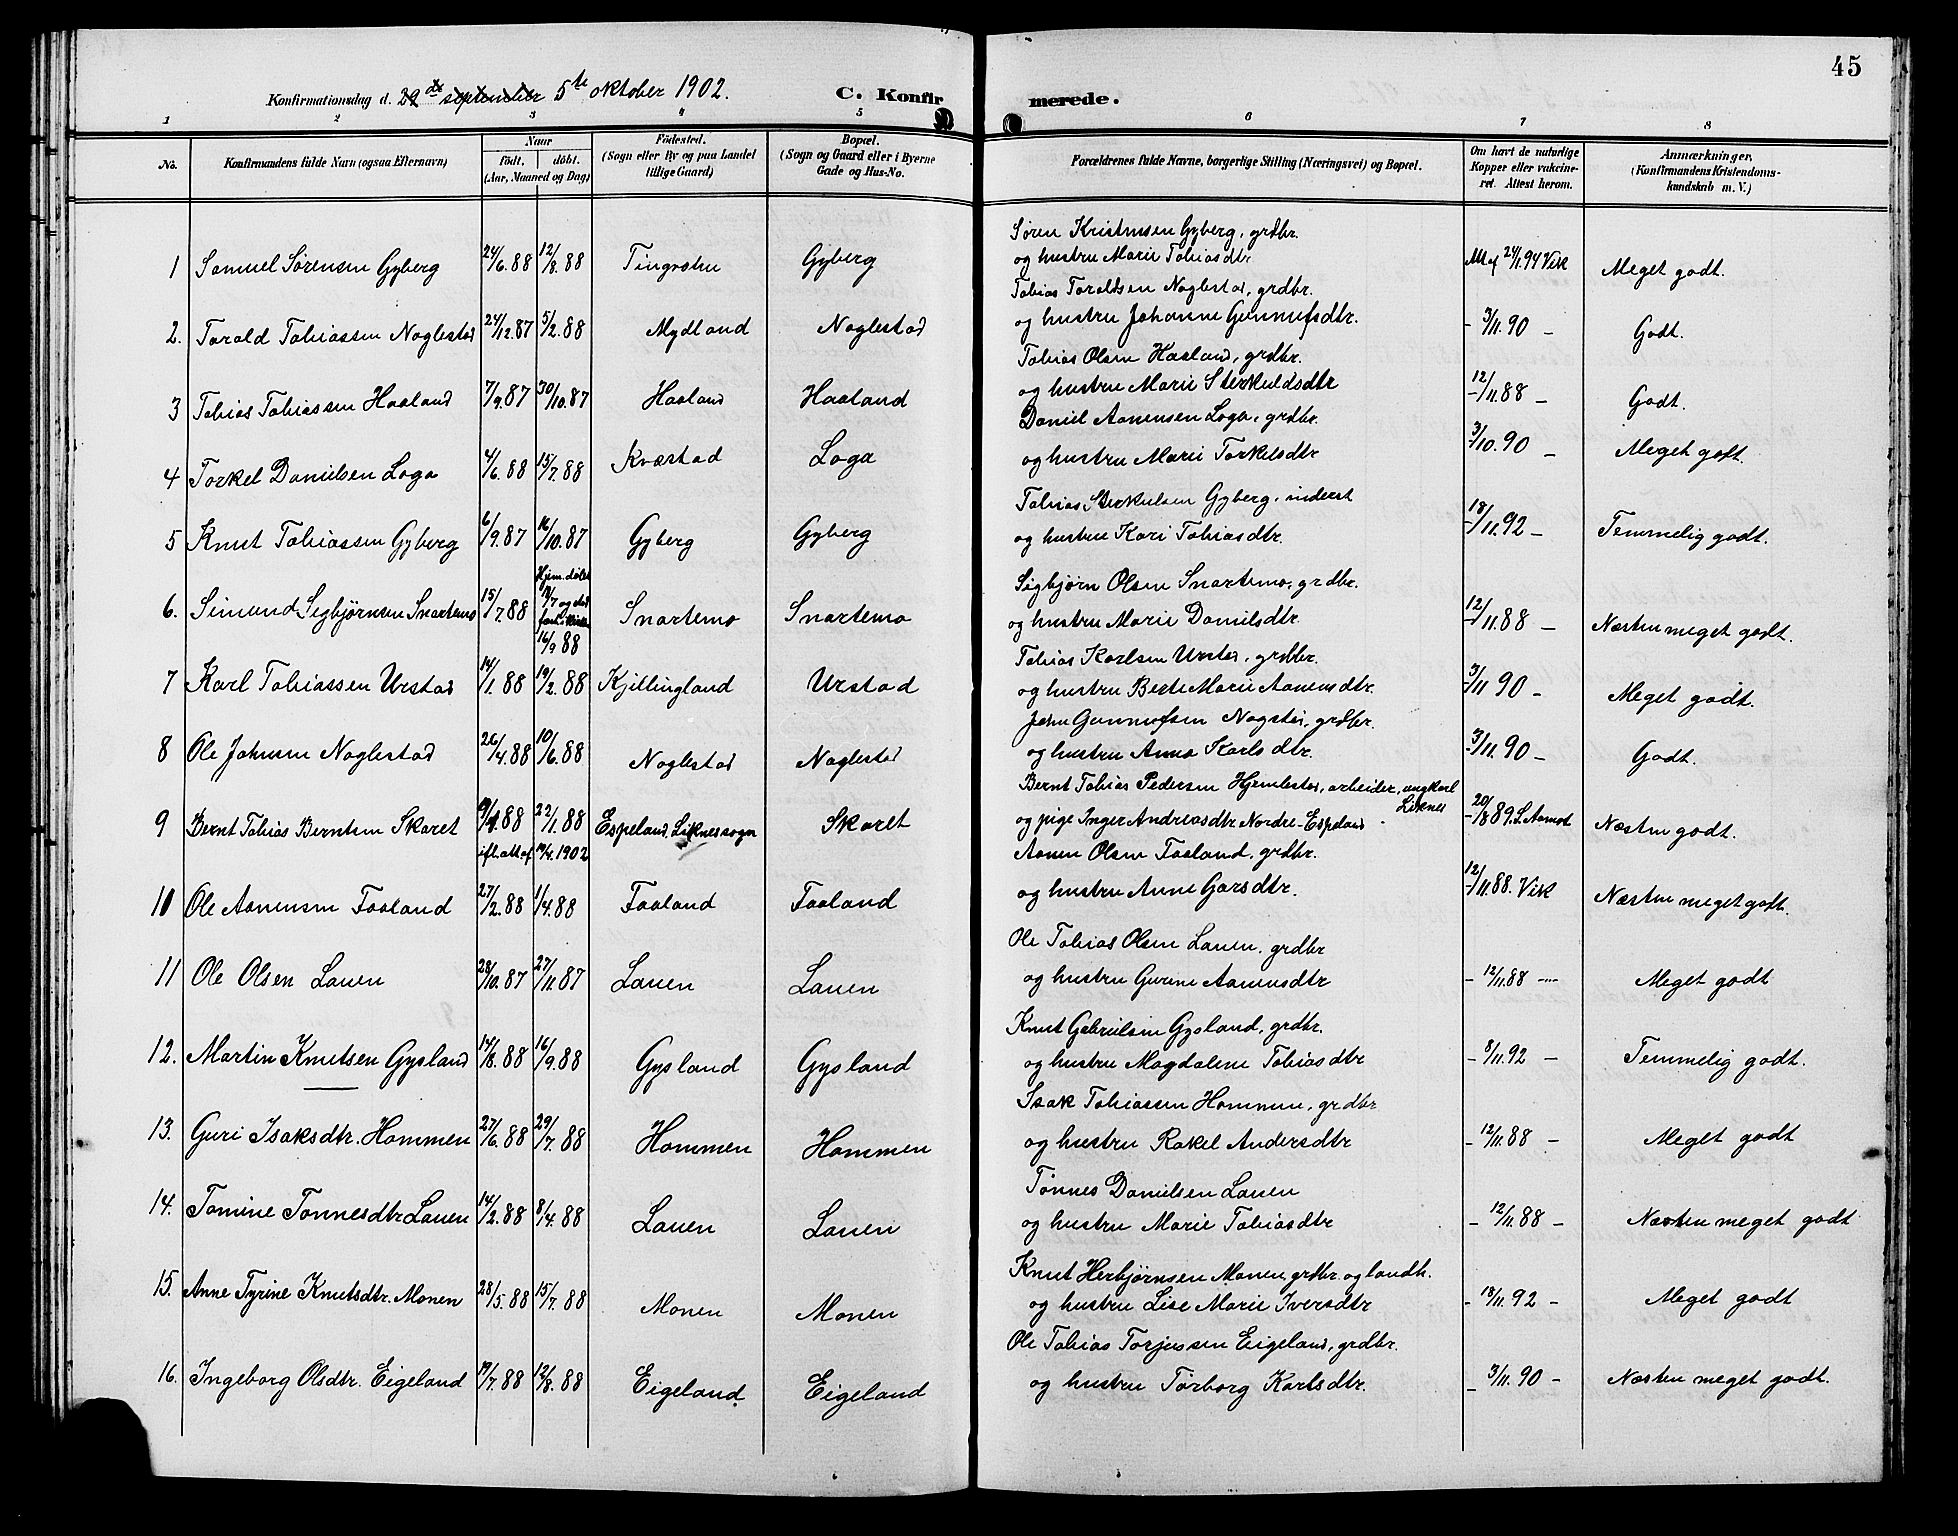 45
Konfirmationsdag d. 29de september 5te oktober 1902.
C. Konfirmerede.
1 2 3 4 5 6 7 8
No.
Konfirmandens fulde Navn (ogsaa Efternavn)
Naar
født. døbt.
(Aar, Maaned og Dag)
Fødested.
(Sogn eller By og paa Landet
tillige Gaard)
Bopæl.
(Sogn og Gaard eller i Byerne
Gade og Hus-No.
Forældrenes fulde Navne, borgerlige Stilling (Næringsvei) og Bopæl.
Om havt de naturlige
Kopper eller vakcine-
ret. Attest herom.
Anmærkninger.
(Konfirmandens Kristendoms-
kundskab m. V.)
Søren Kristensen Gyberg, grdbr.
1 Samuel Sørensen Gyberg 24/6.88 12/8.88 Tingvatn Gyberg og hustru Marie Tobiasdtr Att af 24/1.94 Vik Meget godt.
Tobias Toraldsen Noglestad, grdbr.
2. Torald Tobiassen Noglestad 24/12.87 5/2.88 Mydland Noglestad og hustru Johanne Gunnufsdtr. - 3/11.90 - Godt.
Tobias Olsen Haaland, grdbr.
3 Tobias Tobiassen Haaland 7/9.87 30/10.87 Haaland Haaland og hustru Marie Sterkuldsdtr - 12/11.88 - Godt.
Daniel Aanensen Loga, grdbr.
4 Torkel Danielsen Loga 4/6.88 15/7.88 Kvæstad Loga og hustru Marie Torkelsdtr - 3/10.90 - Meget godt.
Tobias Sterkulsen Gyberg, inderst
5 Knut Tobiassen Gyberg 6/9.87 16/10.87 Gyberg Gyberg og hustru Kari Tobiasdtr. - 18/11.92 - Temmelig godt.
Sigbjørn Olsen Snartemo, grdbr.
Hjem.døbt
6. Simund Sigbjørnsen Snartemo 15/7.88 16/9 88 Snartemo Snartemo og hustru Marie Danielsdtr. - 12/11.88 - Næsten meget godt.
Tobias Karlsen Urstad, grdbr.
7 Karl Tobiassen Urstad 14/1.88 19/2.88 Kjillingland Urstad og hustru Berte Marie Aanensdtr. - 3/11 90 - Meget godt.
John Gunnufsen Nogstad, grdbr.
8 Ole Johnsen Noglestad 26/4.88 10/6.88 Noglestad Noglestad og hustru Anna Karlsdtr. - 3/11.90 - Godt.
Bernt Tobias Pedersen Hjemlestad, arbeider, ungkarl
Liknes
9 Bernt Tobias Berntsen Skaret 9/1.88 22/1.88 Espeland, Liknes sogn Skaret og pige Inger Andreasdtr Nordre-Espeland - 20/8 89. S. Aamot Næsten godt.
ifl. att af 19/4.1902
Aanen Olsen Faaland, grdbr.
10 Ole Aanensen Faaland 27/2.88 1/4.88 Faaland Faaland og hustru Anne Garsdtr. - 12/11.88. Vik Næsten meget godt.
Ole Tobias Olsen Lauen, grdbr
11 Ole Olsen Lauen 28/10.87 27/11.87 Lauen Lauen og hustru Gurine Aanensdtr - 12/11.88 - Meget godt
Knut Gabrielsen Gysland, grdbr.
12. Martin Knutsen Gysland 14/8.88 16/9.88 Gysland Gysland og hustru Magdalene Tobiasdtr - 8/11.92 - Temmelig godt.
Isak Tobiassen Hommen, grdbr
13. Guri Isaksdtr. Hommen 27/6.88 29/7.88 Hommen Hommen og hustru Rakel Andersdtr - 12/11.88 - Meget godt
Tønnes Danielsen Lauen
14. Tomine Tønnesdtr Lauen 14/2.88 8/4.88 Lauen Lauen og hustru Marie Tobiasdtr - 12/11.88 - Næsten meget godt
Knut Herbjørnsen Monen, grdbr. og landh.
15. Anne Tyrine Knutsdtr. Monen 28/5.88 15/7.88 Monen Monen og hustru Lise Marie Iversdtr - 18/11.92 - Meget godt
Ole Tobias Torjussen Eigeland, grdbr.
16. Ingeborg Olsdtr. Eigeland 19/7.88 12/8.88 Eigeland Eigeland og hustru Torborg Karlsdtr. - 3/11.90 - Næsten meget godt.